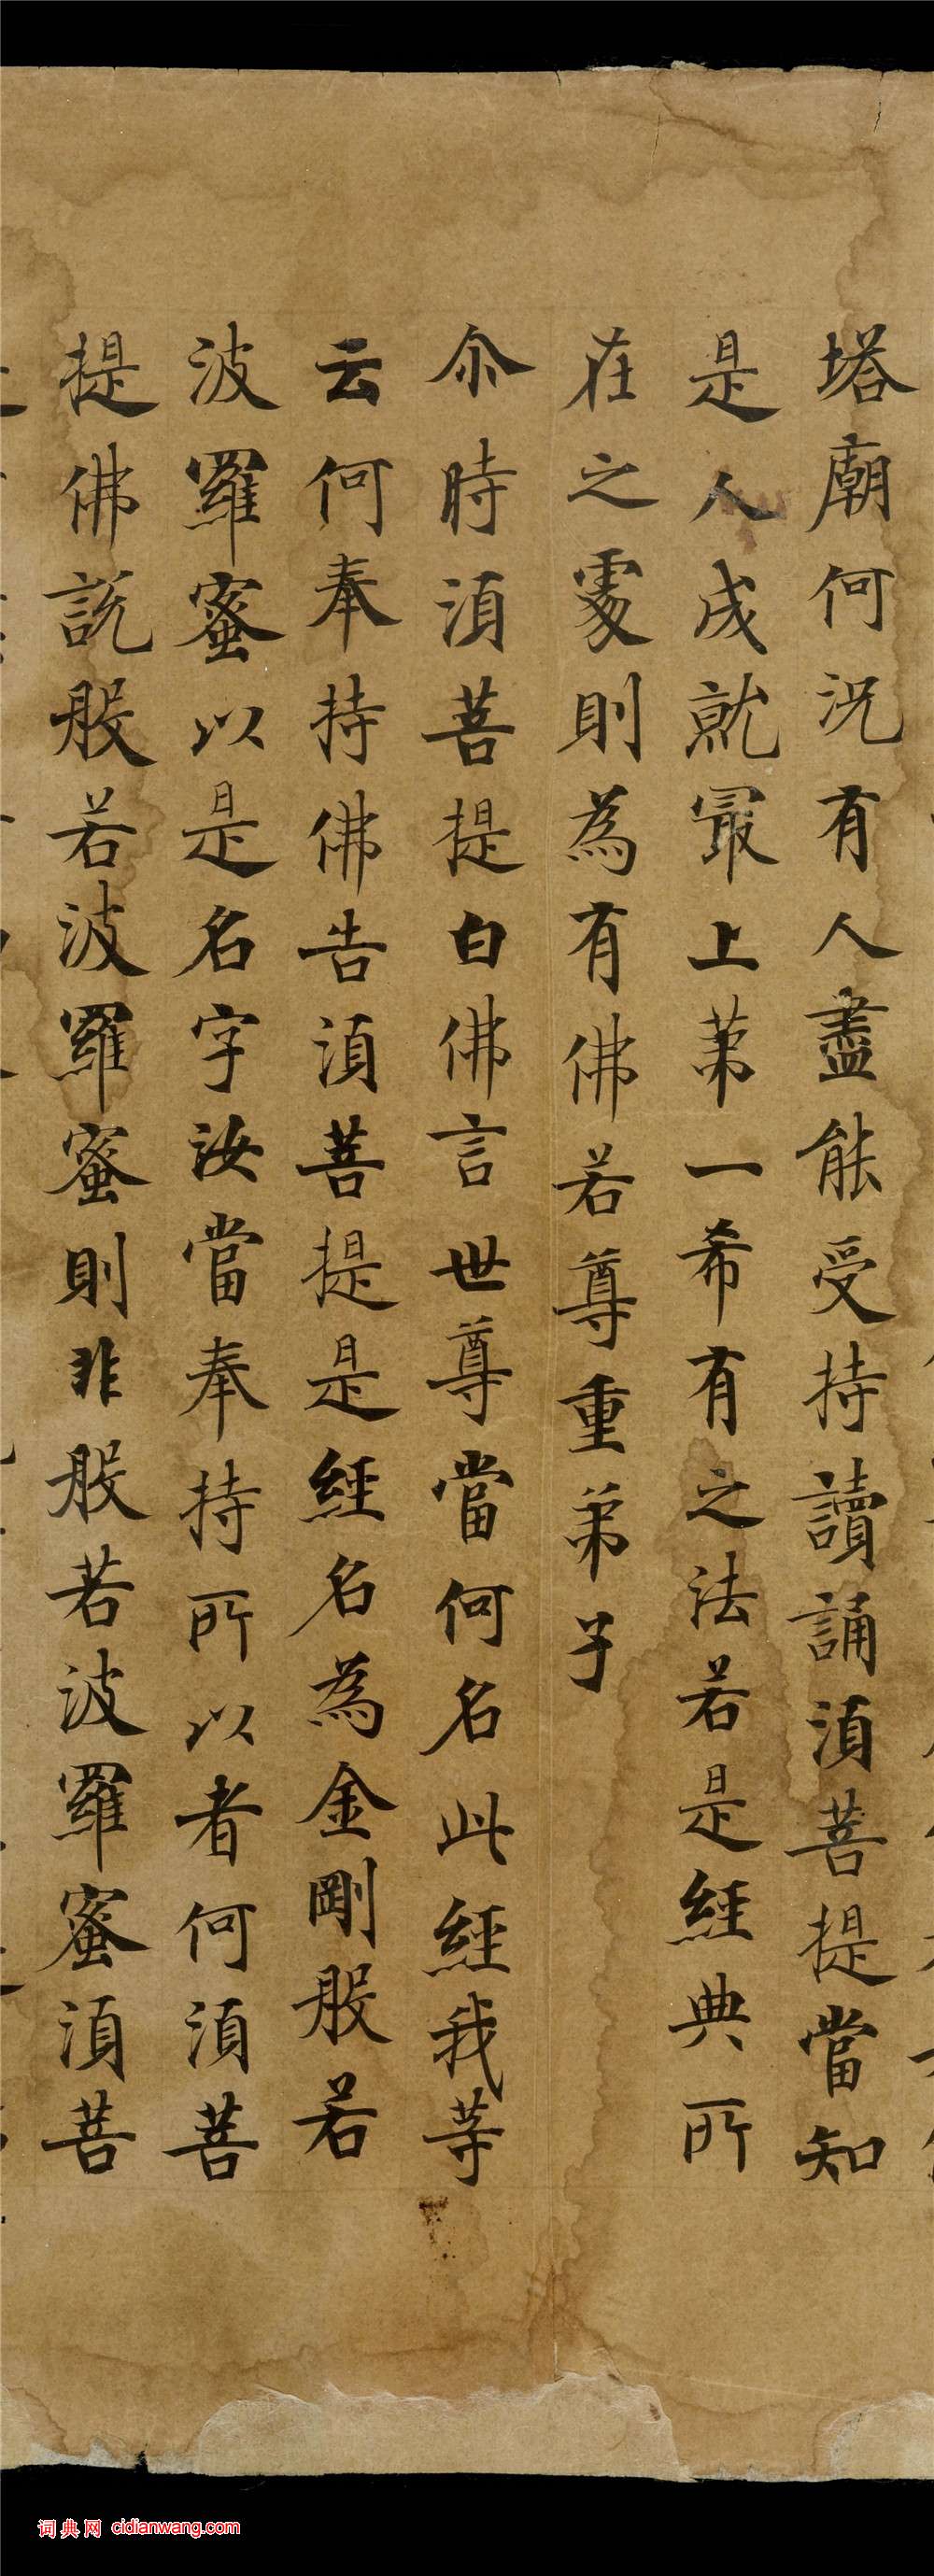 塔廟何況有人盡能受持讀誦湏菩提當知
是人成就冣上苐一希有之法若是經典所
在之處則為有佛若尊重弟子
尒時湏菩提白佛言世尊當何名此經我等
云何奉持佛告湏菩提是經名為金剛般若
波羅蜜以是名字汝當奉持所以者何湏菩
提佛說般若波羅蜜則非般若波羅蜜湏菩
词典网 cidianwang.com